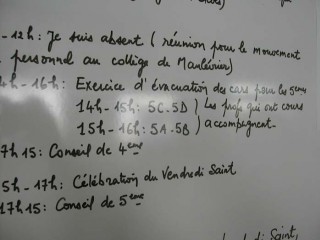 -12h: Je suis absent (réunion pour le mouvement
personnel au collège de Maulévrier)
4h-16h: Exercice d'évacuation des cars pour les 5èmes
14h-15h: 5C-5D ) Les profs qui ont cours
15h-16h: 5A-5B ) accompagnent.
7h15: Conseil de 4ème
5h-17h: Célébration du Vendredi Saint
17h15: Conseil de 5ème
Saint,